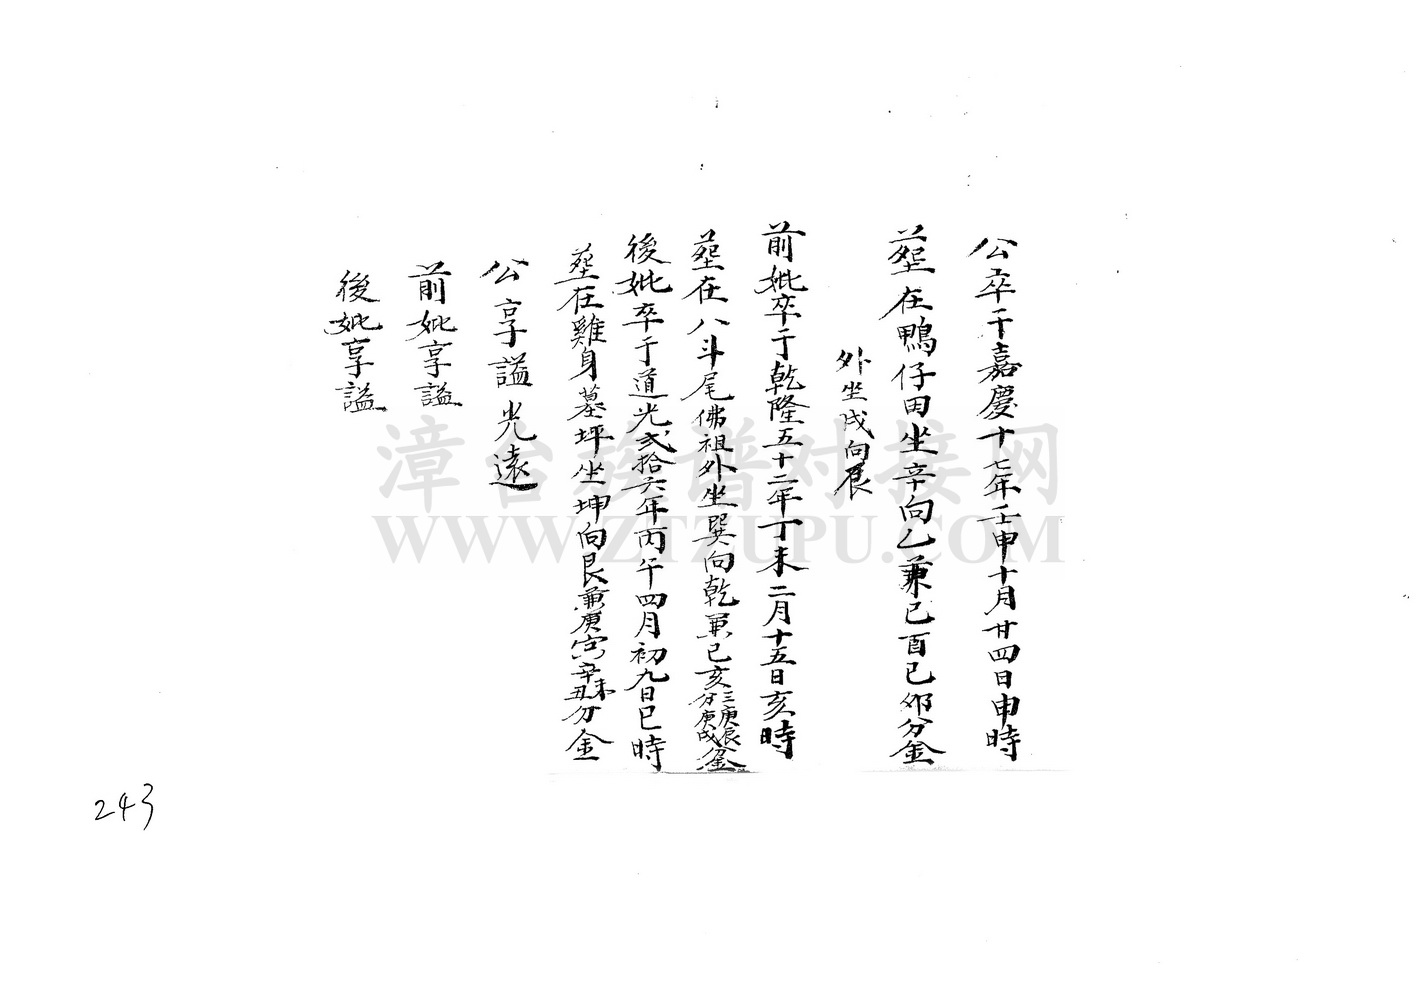 公卒于嘉慶十七年壬申十月廿四日申時
塟在鴨仔田坐辛向乙兼己酉己夘分金
外坐戌向辰
前妣卒于乾隆五十二年丁未二月十五日亥時
塟在八斗尾佛祖外坐巽向乾兼巳亥三庚辰分庚戌金
後妣卒于道光弍拾六年丙午四月初九日巳時
塟在雞身墓坪坐坤向艮兼庚寅辛未辛丑分金
公享謚光遠
前妣享謚
後妣享謚
漳台族谱对接网
WWW.ZTZUPU.COM
243